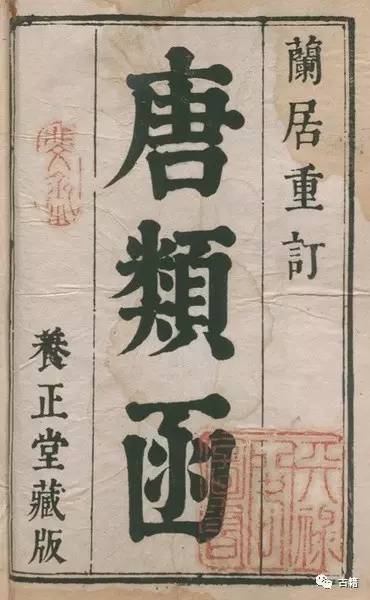 蘭居重訂
唐類函
養正堂藏版
古籍